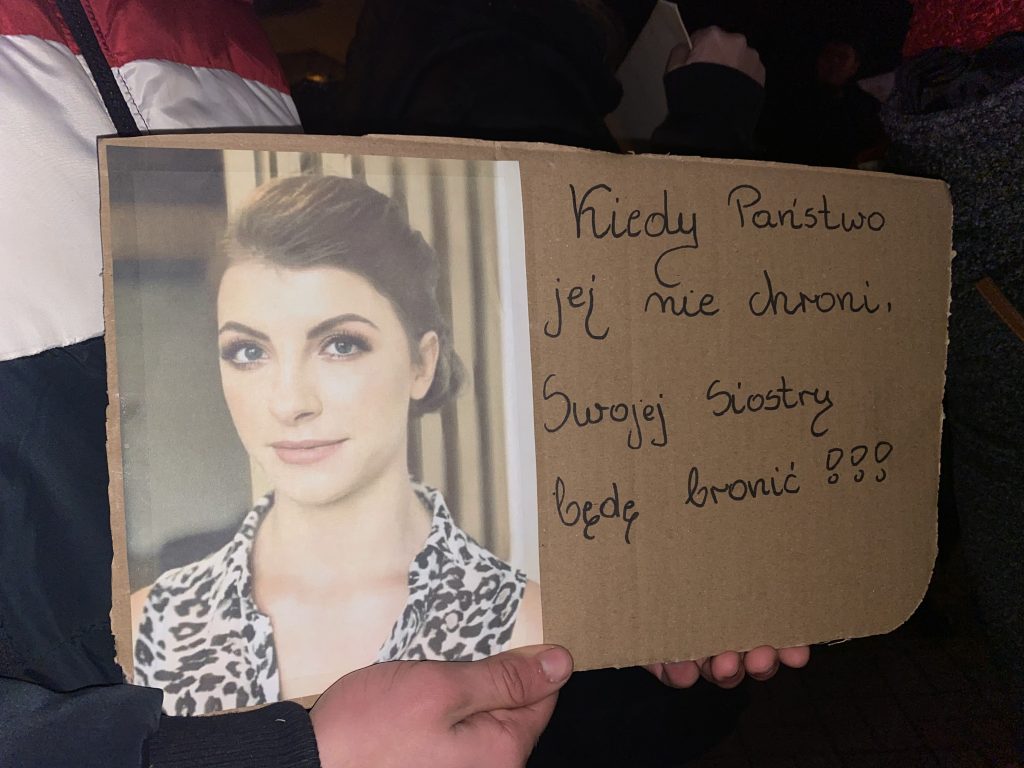 Kiedy Państwo
jej nie chroni,
Swojej Siostry
będę bronić !!!